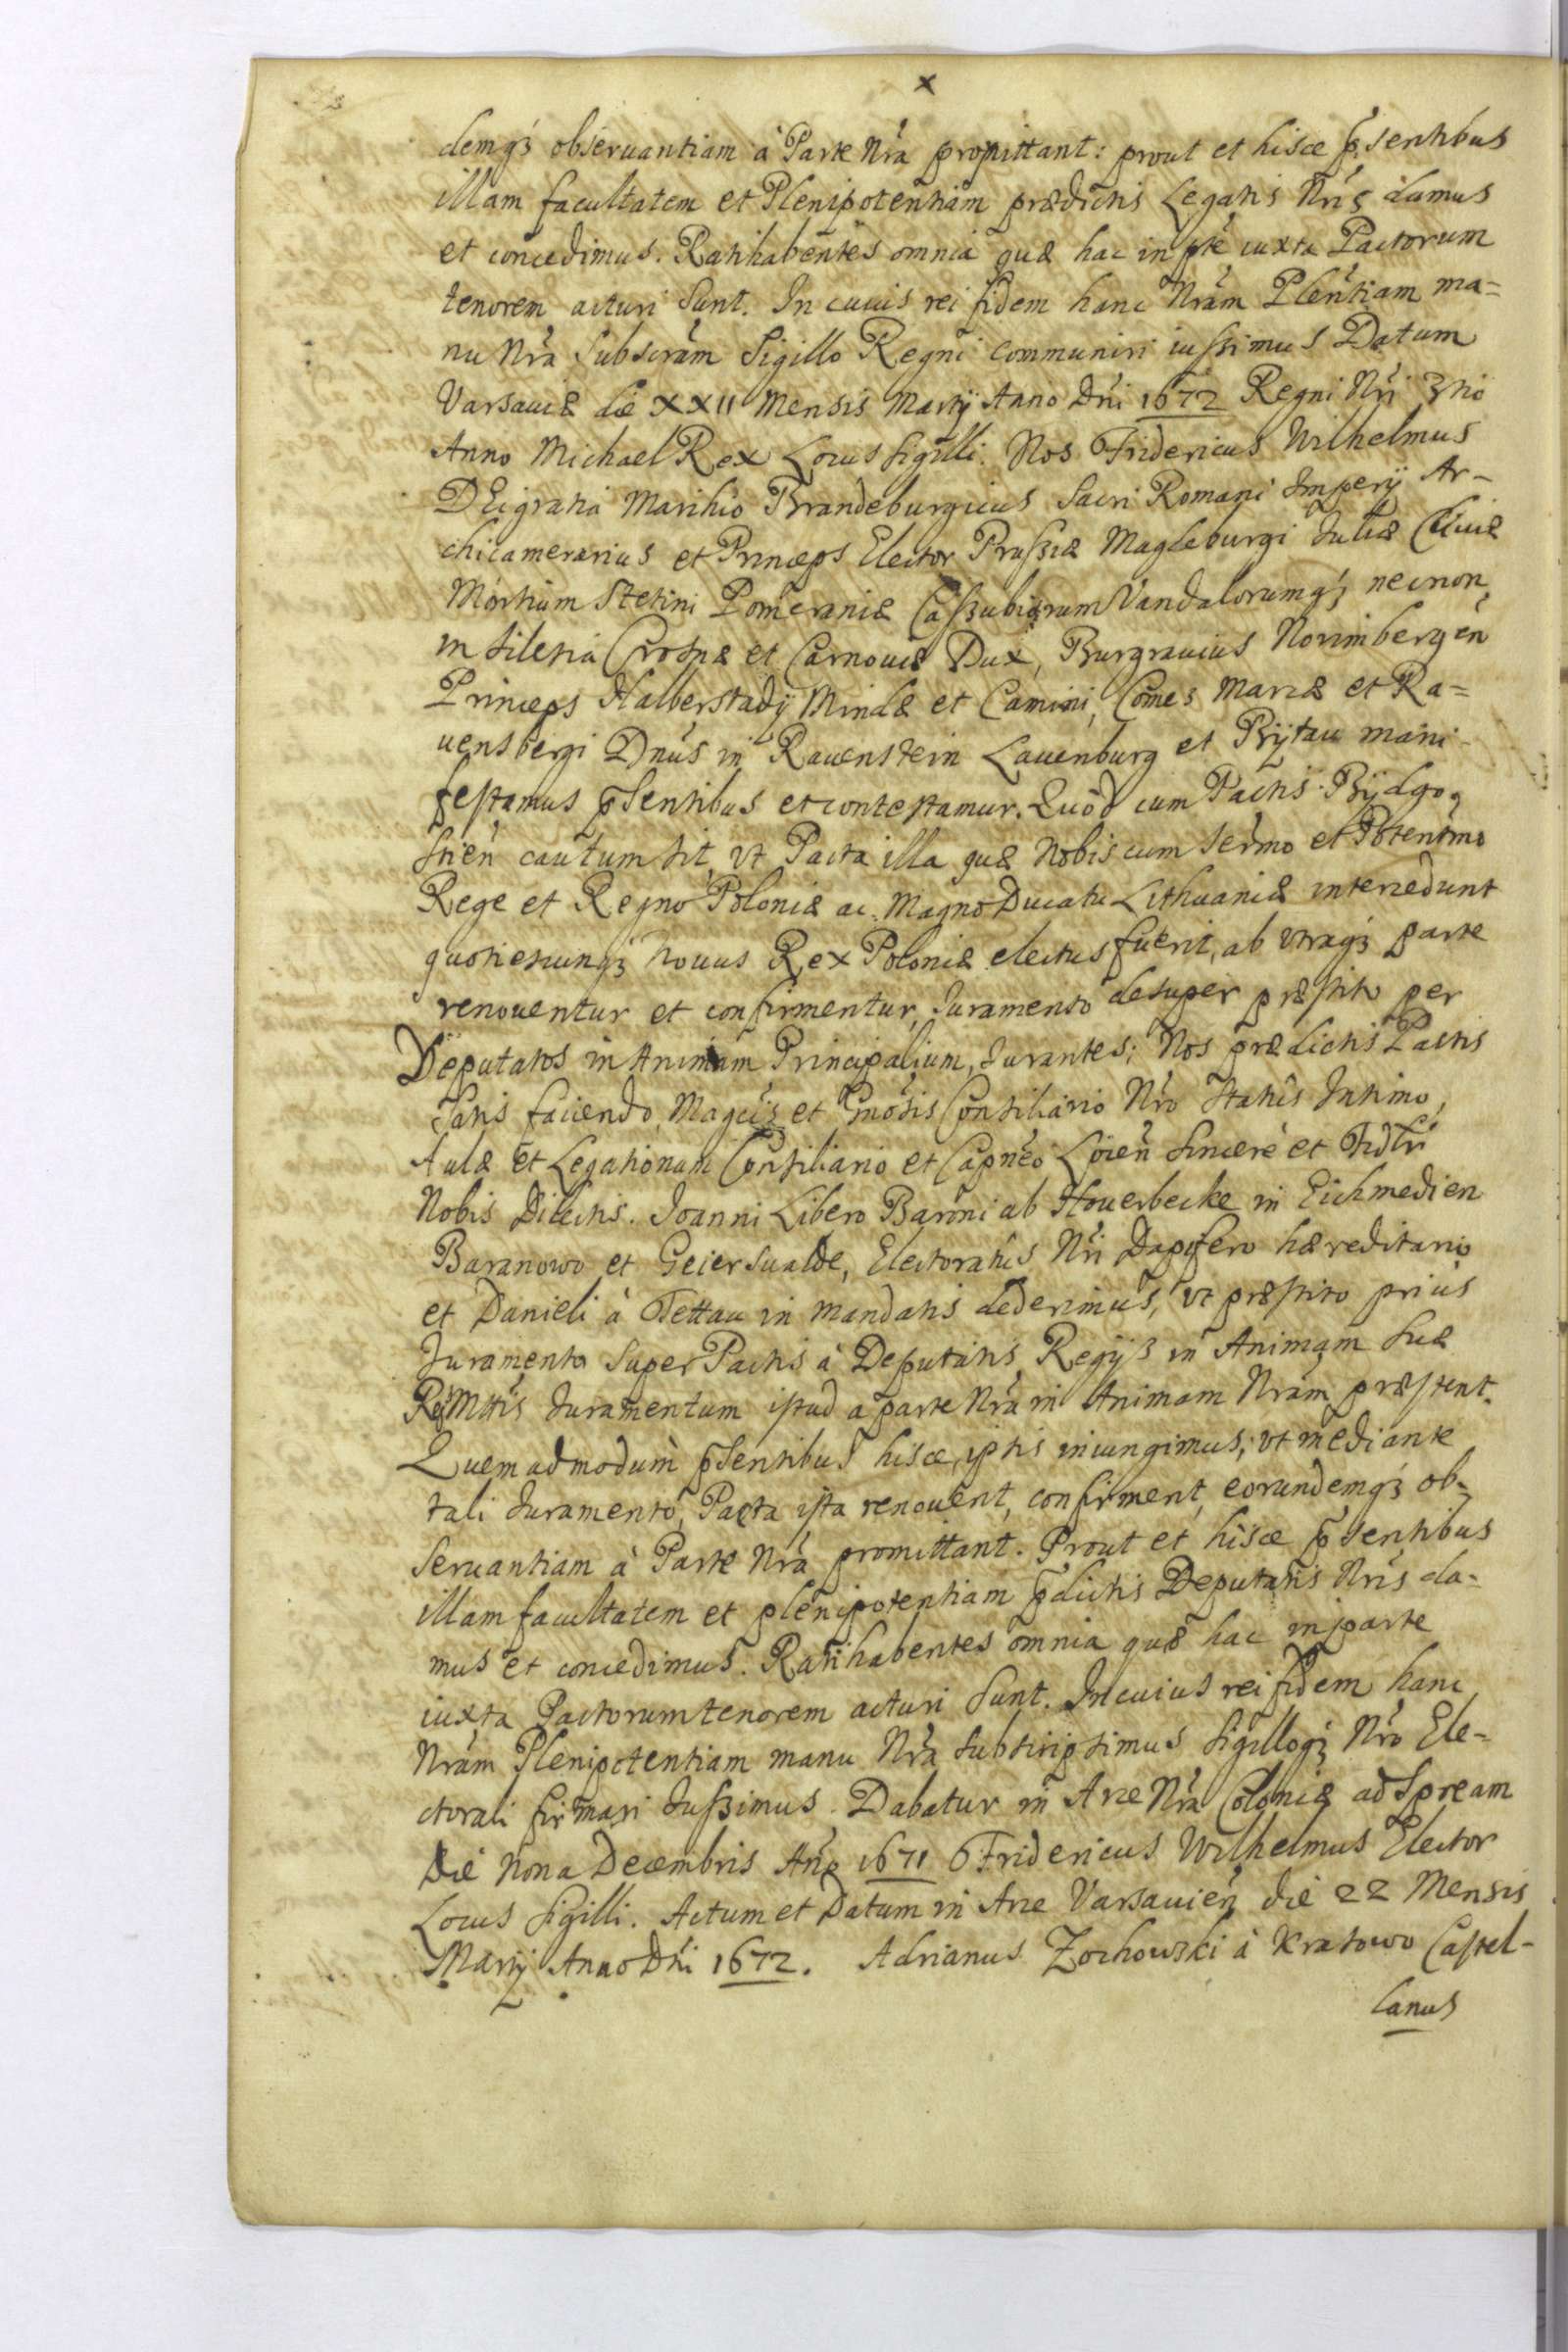 x
demq₃ obseruantiam à Parte Nrá promittant: prout et hisce p̃sentibus
illam facultatem et Plenipotentiam prædictis Legatis Nrís damus
et concedimus. Ratihabentes omnia quæ hac in pte iuxta Pactorum
tenorem acturi sunt. In cuius rei fidem hanc Nrám Plentiam ma=
nu Nrá Subscrám Sigillo Regni communiri iussimus Datum
Varsauiæ die XXII Mensis Martij Anno Dni 1672 Regni Nri 3tio
Anno Michael Rex Locus Sigilli. Nos Fridericus Wilhelmus
DEigratia Marchio Brandeburgicus Sacri Romani Imperij Ar-
chicamerarius et Princeps Elector Prussiæ Magdeburgi Juliæ Cliuiæ
Montium Stetini Pomeraniæ Cassubiorum Vandalorumq₃ necnon
in Silesia Crosnæ et Carnouiæ Dux, Burgrauius Norimbergen
Princeps Halberstadij Mindæ et Camini, Comes Marcæ et Ra=
uensbergi Dnus in Rauenstein Lauenburg et Bÿtau mani-
festamus p̃sentibus et contestamur. Quòd cum Pactis Bÿdgo-
stien cautum sit, vt Pacta illa quæ Nobiscum Sermo et Potentmo
Rege et Regno Poloniæ ac Magno Ducatu Lithuaniæ intercedunt
quotiescunq₃ Nouus Rex Poloniæ electus fuerit, ab vtraq₃ parte
renouentur et confirmentur, Juramento desuper præstito per
Deputatos in Animam Principalium, Jurantes; Nos prædictis Pactis
Satis faciendo, Magcis et Gnosis Consiliario Nro Statûs Intimo,
Aulæ et Legationum Consiliario et Capneo Löcen Sincere et Fidlr
Nobis Dilectis. Joanni Libero Baroni ab Houerbecke in Eichmedien
Baranowo et Geierswalde, Electoratûs Nri Dapifero hæreditario
et Danieli à Tettau in mandatis dederimus, vt præstito priùs
Juramento super Pactis à Deputatis Regijs in Animam Suæ
RMttis Juramentum istud a parte Nrá in Animam Nrám præstent.
Quemadmodum p̃sentibus hisce ipsis iniungimus; vt mediante
tali Juramento, Pacta ista renouent, confirment, eorundemq₃ ob-
seruantiam à Parte Nrá promittant. Prout et hisce p̃sentibus
illam facultatem et plenipotentiam p̃dictis Deputatis Nris da-
mus et concedimus. Ratihabentes omnia quæ hac in parte
iuxta Pactorum tenorem acturi sunt. In cuius rei fidem hanc
Nrám Plenipotentiam manu Nrá subscripsimus Sigilloq₃ Nro Ele-
ctorali firmari Jussimus. Dabatur in Arce Nrá Coloniæ ad Spream
Die Nona Decembris Ano 1671 Fridericus Wilhelmus Elector
Locus Sigilli. Actum et Datum in Arce Varsauien die 22 Mensis
Martij Anno Dni 1672. Adrianus Zochowski à Kratowo Castel-
lanus